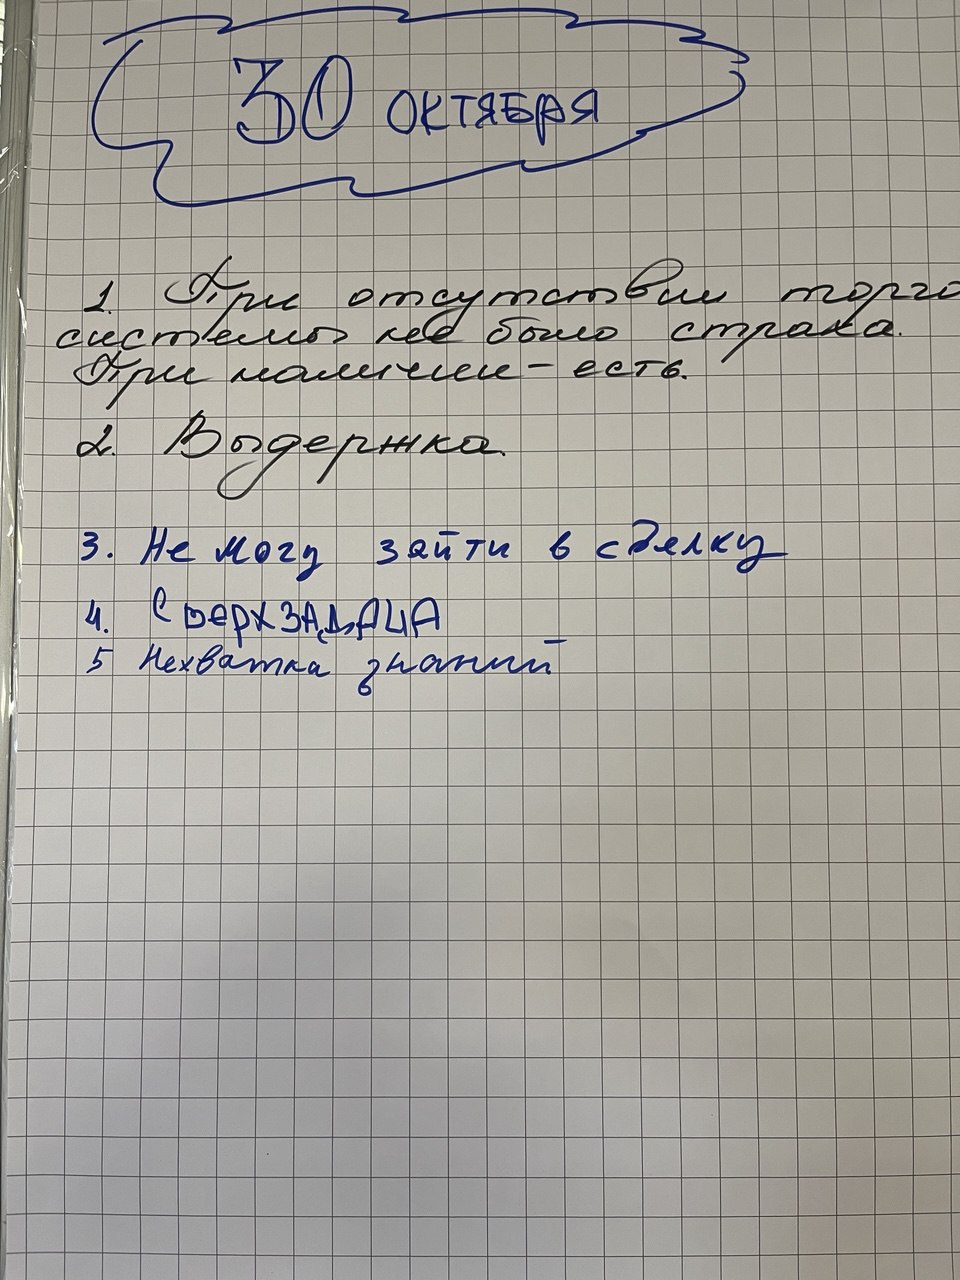 30 октября
1. При отсутствии торго
системы не было страха.
При наличии - есть.
2. Выдержка.
3. Не могу зайти в сделку
4. СВЕРХЗАДАЧА
5 Нехватка знаний